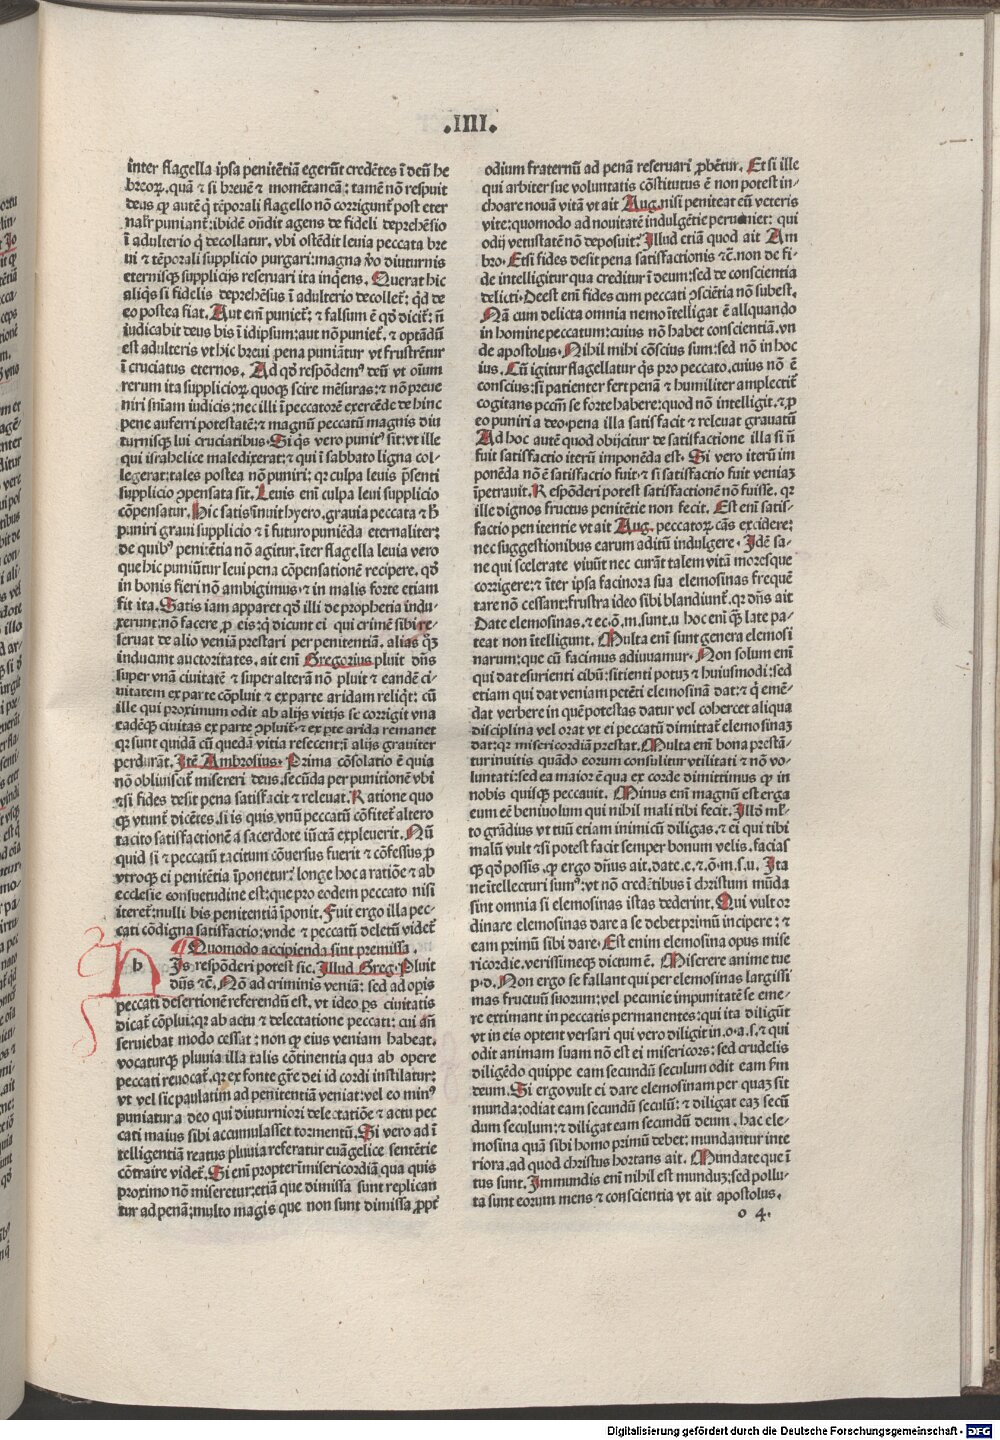 .IIII.
inter flagella ipsa penitētiā egerūt credētes ī deū he
breoꝝ. quā ⁊ si breuē ⁊ momētaneā: tamē nō respuit
deus ꝙ autē q̄ tēporali flagello nō corrigunt᷑ post eter
nalr̄ puniant᷑: ibidē oñdit agens de fideli deprehēsio
ī adulterio q̄ decollatur. vbi ostēdit leuia peccata bre
ui ⁊ tēporali supplicio purgari: magna v̄o diuturnis
eternisqꝫ supplicijs reseruari ita inq̄ens. Querat hic
aliq̄s si fidelis deprehēsus ī adulterio decollet᷑: qͥd de
eo postea fiat. Aut em̄ puniet᷑: ⁊ falsum ē qḋ dicit᷑: n̄
iudicabit deus bis ī idipsum: aut nō puniet᷑. ⁊ optādū
est adulteris vt hic breui pena puniātur vt frustrētur
ī cruciatus eternos. Ad qḋ respōdemꝰ deū vt oīum
rerum ita supplicioꝝ quoqꝫ scire mēsuras: ⁊ nō preue
niri sniam iudicis: nec illi ī peccatorē exercēde dehinc
pene auferri potestatē: ⁊ magnū peccatū magnis diu
turnisqꝫ lui cruciatibus. Si q̄s vero punitꝰ sit: vt ille
qui israhelice maledixerat: ⁊ qui ī sabbato ligna col-
legerat: tales postea nō puniri: qꝛ culpa leuis p̄senti
supplicio ꝯpensata sit. Leuis em̄ culpa leui supplicio
cōpensatur. Hic satis īnuit hyero. grauia peccata ⁊ h̄
puniri graui supplicio ⁊ ī futuro puniēda eternaliter:
de quibꝰ penitētia nō agitur. īter flagella leuia vero
que hic puniūtur leui pena cōpensationē recipere. qḋ
in bonis fieri nō ambigimus. ⁊ in malis forte etiam
fit ita. Satis iam apparet qḋ illi de prophetia indu-
xerunt: nō facere ꝓ eis: q̄ dicunt ei qui crimē sibi re-
seruat de alio veniā prestari per penitentiā. alias qꝫ
inducunt auctoritates. ait em̄ Gregorius pluit dn̄s
super vnā ciuitatē ⁊ super alterā nō pluit ⁊ eandē ci-
uitatem ex parte cōpluit ⁊ ex parte aridam reliq̄t: cū
ille qui proximum odit ab alijs vitijs se corrigit vna
eadēqꝫ ciuitas ex parte ꝯpluit᷑. ⁊ ex pte arida remanet
qꝛ sunt quidā cū quedā vitia resecent: ī alijs grauiter
perdurāt. Itē Ambrosius. Prima cōsolatio ē quia
nō obliuiscit᷑ misereri deus. secūda per punitionē vbi
⁊ si fides desit pena satisfacit ⁊ releuat. Ratione quo
qꝫ vtunt᷑ dicētes. si is quis vnū peccatū cōfitet᷑ altero
tacito satisfactionē a sacerdote iūctā expleuerit. Nū
quid si ⁊ peccatū tacitum cōuersus fuerit ⁊ cōfessus ꝓ
vtroqꝫ ei penitētia īponetur? longe hoc a ratiōe ⁊ ab
ecclesie consuetudine est: que pro eodem peccato nisi
iteret᷑: nulli bis penitentiā īponit. Fuit ergo illa pec-
cati cōdigna satisfactio: vnde ⁊ peccatū deletū videt᷑
¶ Quomodo accipienda sint premissa.
b
His respōderi potest sic. Illud Greg. Pluit
dūs ⁊c̄. Nō ad criminis veniā: sed ad opis
peccati desertionē referendū est. vt ideo ps ciuitatis
dicat᷑ cōplui: qꝛ ab actu ⁊ delectatione peccati: cui añ
seruiebat modo cessat: non ꝙ eius veniam habeat.
vocaturqꝫ pluuia illa talis cōtinentia qua ab opere
peccati reuocat᷑. qꝛ ex fonte gr̄e dei id cordi instilatur:
vt vel sic paulatim ad penitentiā veniat: vel eo minꝰ
puniatur a deo qui diuturniori delectatiōe ⁊ actu pec
cati maius sibi accumulasset tormentū. Si vero ad ī
telligentiā reatus pluuia referatur euāgelice sentētie
cōtraire videt᷑. Si em̄ propter inmisericordiā qua quis
proximo nō miseretur: etiā que dimissa sunt replican
tur ad penā: multo magis que non sunt dimissa ꝓpt᷑
odium fraternū ad penā reseruari ꝓbētur. Et si ille
qui arbiter sue voluntatis cōstitutus ē non potest in-
choare nouā vitā vt ait Aug. nisi peniteat eū veteris
vite: quomodo ad nouitatē indulgētie perueniet: qui
odij vetustatē nō deposuit? Illud etiā quod ait Am
bro. Etsi fides desit pena satisfactionis ⁊c̄. non de fi-
de intelligitur qua creditur ī deum: sed de conscientia
delicti. Deest em̄ fides cum peccati ꝯsciētia nō subest.
Nā cum delicta omnia nemo ītelligat ē aliquando
in homine peccatum: cuius nō habet conscientiā. vn
de apostolus. Nihil mihi cōscius sum: sed nō in hoc
ius. Cū igitur flagellatur q̄s pro peccato. cuius nō ē
conscius: si patienter fert penā ⁊ humiliter amplectit᷑
cogitans pcc̄m se forte habere: quod nō intelligit. ⁊ ꝓ
eo puniri a deo. pena illa satisfacit ⁊ releuat grauatū
Ad hoc autē quod obijcitur de satisfactione illa si n̄
fuit satisfactio iterū imponēda est. Si vero iterū im
ponēda nō ē satisfactio fuit. ⁊ si satisfactio fuit veniaꝫ
īpetrauit. Respōderi potest satisfactionē nō fuisse. qꝛ
ille dignos fructus penitētie non fecit. Est em̄ satis-
factio penitentie vt ait Aug. peccatoꝝ cās excidere:
nec suggestionibus earum aditū indulgere. Idē sa-
ne qui scelerate viuūt nec curāt talem vitā moresque
corrigere: ⁊ īter ipsa facinora sua elemosinas frequē
tare nō cessant: frustra ideo sibi blandiunt᷑. qꝛ dn̄s ait
Date elemosinas. ⁊ ecō. m. sunt. u hoc em̄ q̄ꝫ late pa-
teat non ītelligunt. Multa em̄ sunt genera elemosi
narum: que cū facimus adiuuamur. Non solum em̄
qui dat esurienti cibū: sitienti potuꝫ ⁊ huiusmodi: sed
etiam qui dat veniam petēti elemosinā dat: ⁊ q̄ emē-
dat verbere in quē potestas datur vel cohercet aliqua
disciplina vel orat vt ei peccatū dimittat᷑ elemosinaꝫ
dat: qꝛ misericordiā prestat. Multa em̄ bona prestā-
tur inuitis quādo eorum consulitur vtilitati ⁊ nō vo-
luntati: sed ea maior ē qua ex corde dimittimus ꝙ in
nobis quisqꝫ peccauit. Minus em̄ magnū est erga
eum eē beniuolum qui nihil mali tibi fecit. Illḋ ml̄-
to grādius vt tuū etiam inimicū diligas. ⁊ ei qui tibi
malū vult ⁊ si potest facit semper bonum velis. facias
qꝫ qḋ possis. ꝙ ergo dn̄us ait. date. e. ⁊. ō. m. s. u. Ita
ne ītellecturi sumꝰ: vt nō credētibus ī christum mūda
sint omnia si elemosinas istas dederint. Qui vult or
dinare elemosinas dare a se debet primū incipere: ⁊
eam primū sibi dare. Est enim elemosina opus mise
ricordie. verissimeqꝫ dictum ē. Miserere anime tue
p. d. Non ergo se fallant qui per elemosinas largissi
mas fructuū suozum: vel pecunie impunitatē se eme-
re extimant in peccatis permanentes: qui ita diligūt
vt in eis optent versari qui vero diligit in. o. a. s. ⁊ qui
odit animam suam nō est ei misericors: sed crudelis
diligēdo quippe eam secundū seculum odit eam s̄m
deum. Si ergo vult ei dare elemosinam per quaꝫ sit
munda: odiat eam secundū seculū: ⁊ diligat eaꝫ secū
dum seculum: ⁊ diligat eam secundū deum. hac ele-
mosina quā sibi homo primū debet: mundantur inte
riora. ad quod christus hortans ait. Mundate que ī
tus sunt. Immundis em̄ nihil est munduꝫ: sed pollu-
ta sunt eorum mens ⁊ conscientia vt ait apostolus.
o 4.
Digitalisierung gefördert durch die Deutsche Forschungsgemeinschaft - DFG